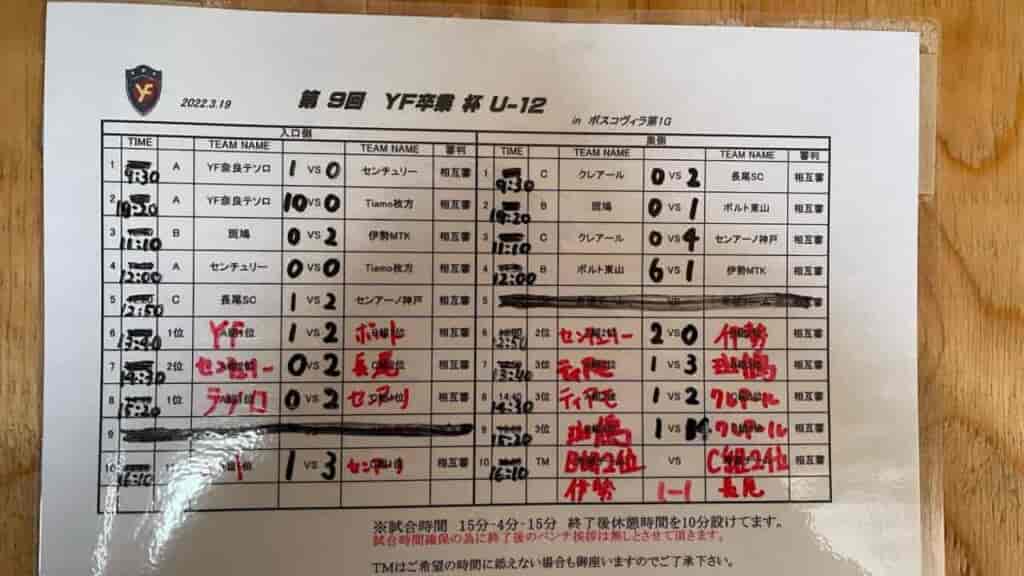 YF
2022.3.19
第 9回 YF卒業 杯 U-12
in ボスコヴィラ第1G
入口側 奥側
TIME TEAM NAME TEAM NAME 審判 TIME TEAM NAME TEAM NAME 審判
1 9:30 A YF奈良テソロ 1 VS 0 センチュリー 相互審 1 9:30 C クレアール 0 VS 2 長尾SC 相互審
2 10:20 A YF奈良テソロ 10 VS 0 Tiamo枚方 相互審 2 10:20 B 斑鳩 0 VS 1 ポルト東山 相互審
3 11:10 B 斑鳩 0 VS 2 伊勢MTK 相互審 3 11:10 C クレアール 0 VS 4 センアーノ神戸 相互審
4 12:00 A センチュリー 0 VS 0 Tiamo枚方 相互審 4 12:00 B ポルト東山 6 VS 1 伊勢MTK 相互審
5 12:50 C 長尾SC 1 VS 2 センアーノ神戸 相互審 5 VS
6 13:40 1位 YF 1 VS 2 ポルト 相互審 6 12:50 2位 センチュリー 2 VS 0 伊勢 相互審
7 14:30 2位 センチュリー 0 VS 2 長尾 相互審 7 13:40 3位 ティアモ 1 VS 3 斑鳩 相互審
8 15:20 1位 テソロ 0 VS 2 センアーノ 相互審 8 14:30 3位 ティアモ 1 VS 2 クレアール 相互審
9 9 15:20 3位 斑鳩 1 VS クレアール 相互審
10 16:10 1 VS 3 センアーノ 相互審 10 16:10 TM B組2位 VS C組2位 相互審
伊勢 1-1 長尾
※試合時間 15分-4分-15分 終了後休憩時間を10分設けてます。
試合時間確保の為に終了後のベンチ挨拶は無しとさせて頂きます。
TMはご希望の時間に添えない場合も御座いますのでご了承下さい。